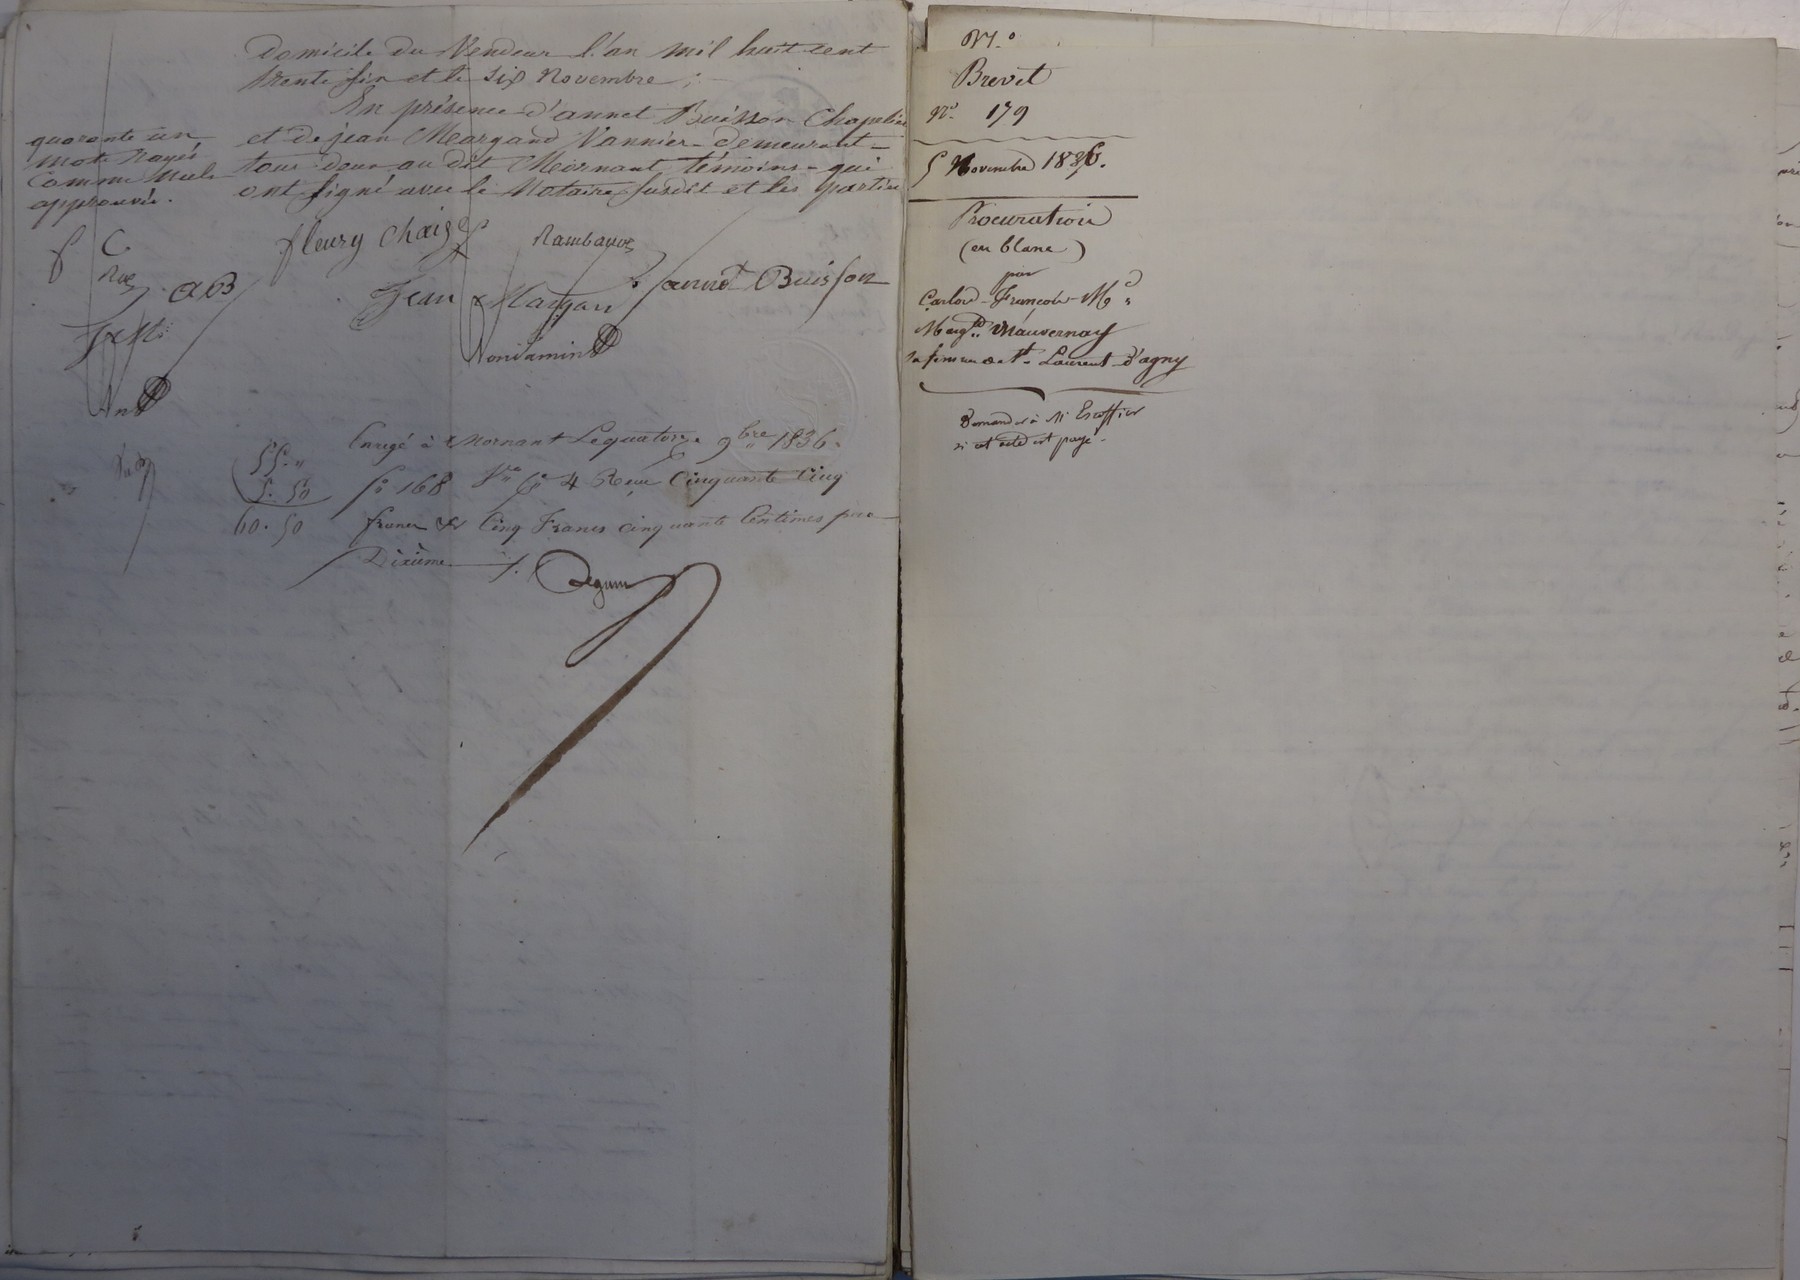 Domicile du Vendeur l'an mil huit cent
trente six et le six Novembre ;
En présence d'annet Buisson Chapelier
et de jean Margand Vannier demeurant
tous deux au dit Mornant témoins qui
ont signé avec le Notaire susdit et les parties
quarante un
mots rayés
comme nuls
approuvés.
f C
AB
fleury Chaize
Rambaud
Jean Margan
annet Buisson
Enrgé à Mornant Le quatorze 9bre 1836.
fo 168 Vo Ce 4 Reçu Cinquante Cinq
francs & Cinq Francs cinquante Centimes pour
Dixième
55. "
5. 50
60. 50
Brevet
No. 179
5 Novembre 1836.
Procuration
(en blanc)
par
Carlod - François - Md
Margte Mauvernay
sa femme de St Laurent d'agny
Demander à Mr Escoffier
si cet acte est payé.